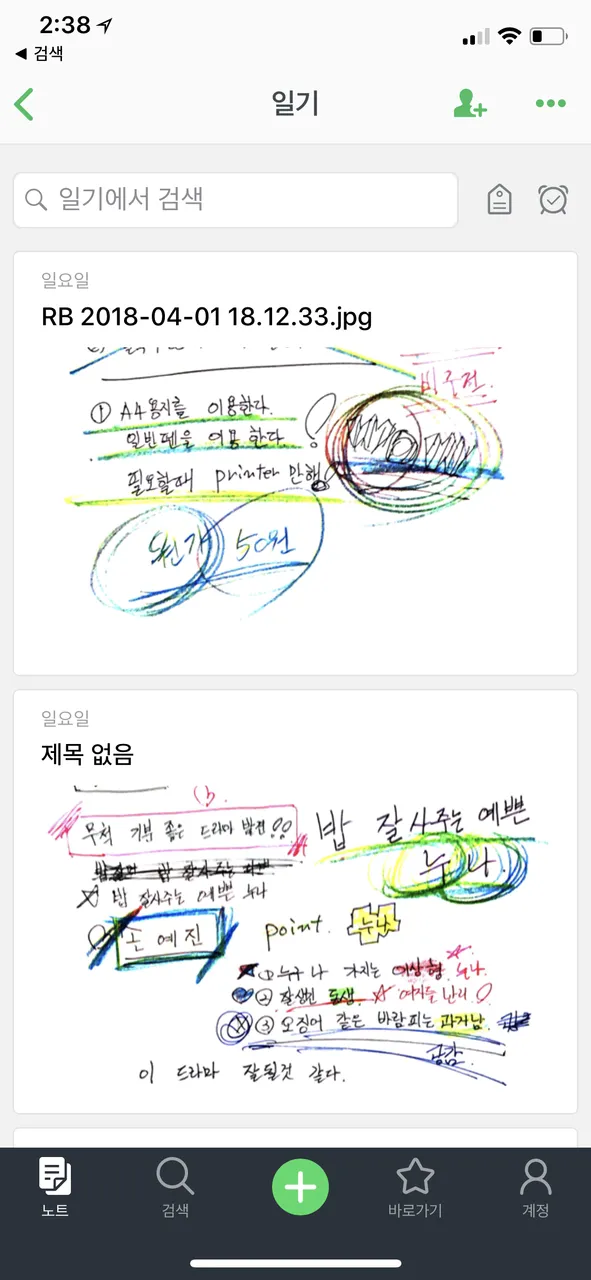 2:38
◀ 검색
일기
일기에서 검색
일요일
RB 2018-04-01 18.12.33.jpg
비주얼.
① A4용지를 이용한다.
일반펜을 이용한다.
필요할때 printer 만해
50원
일요일
제목 없음
무척 기분 좋은 드라마 발견!!
밥 잘사주는 예쁜
누나.
밥 잘사주는 예쁜 누나
손예진
point. 누나
① 누구나 가지는 이상형 누나.
② 잘생긴 동생. ☆ 여자들 난리!
③ 오징어 같은 바람피는 과거남.
공감.
이 드라마 잘될것 같다.
노트
검색
바로가기
계정